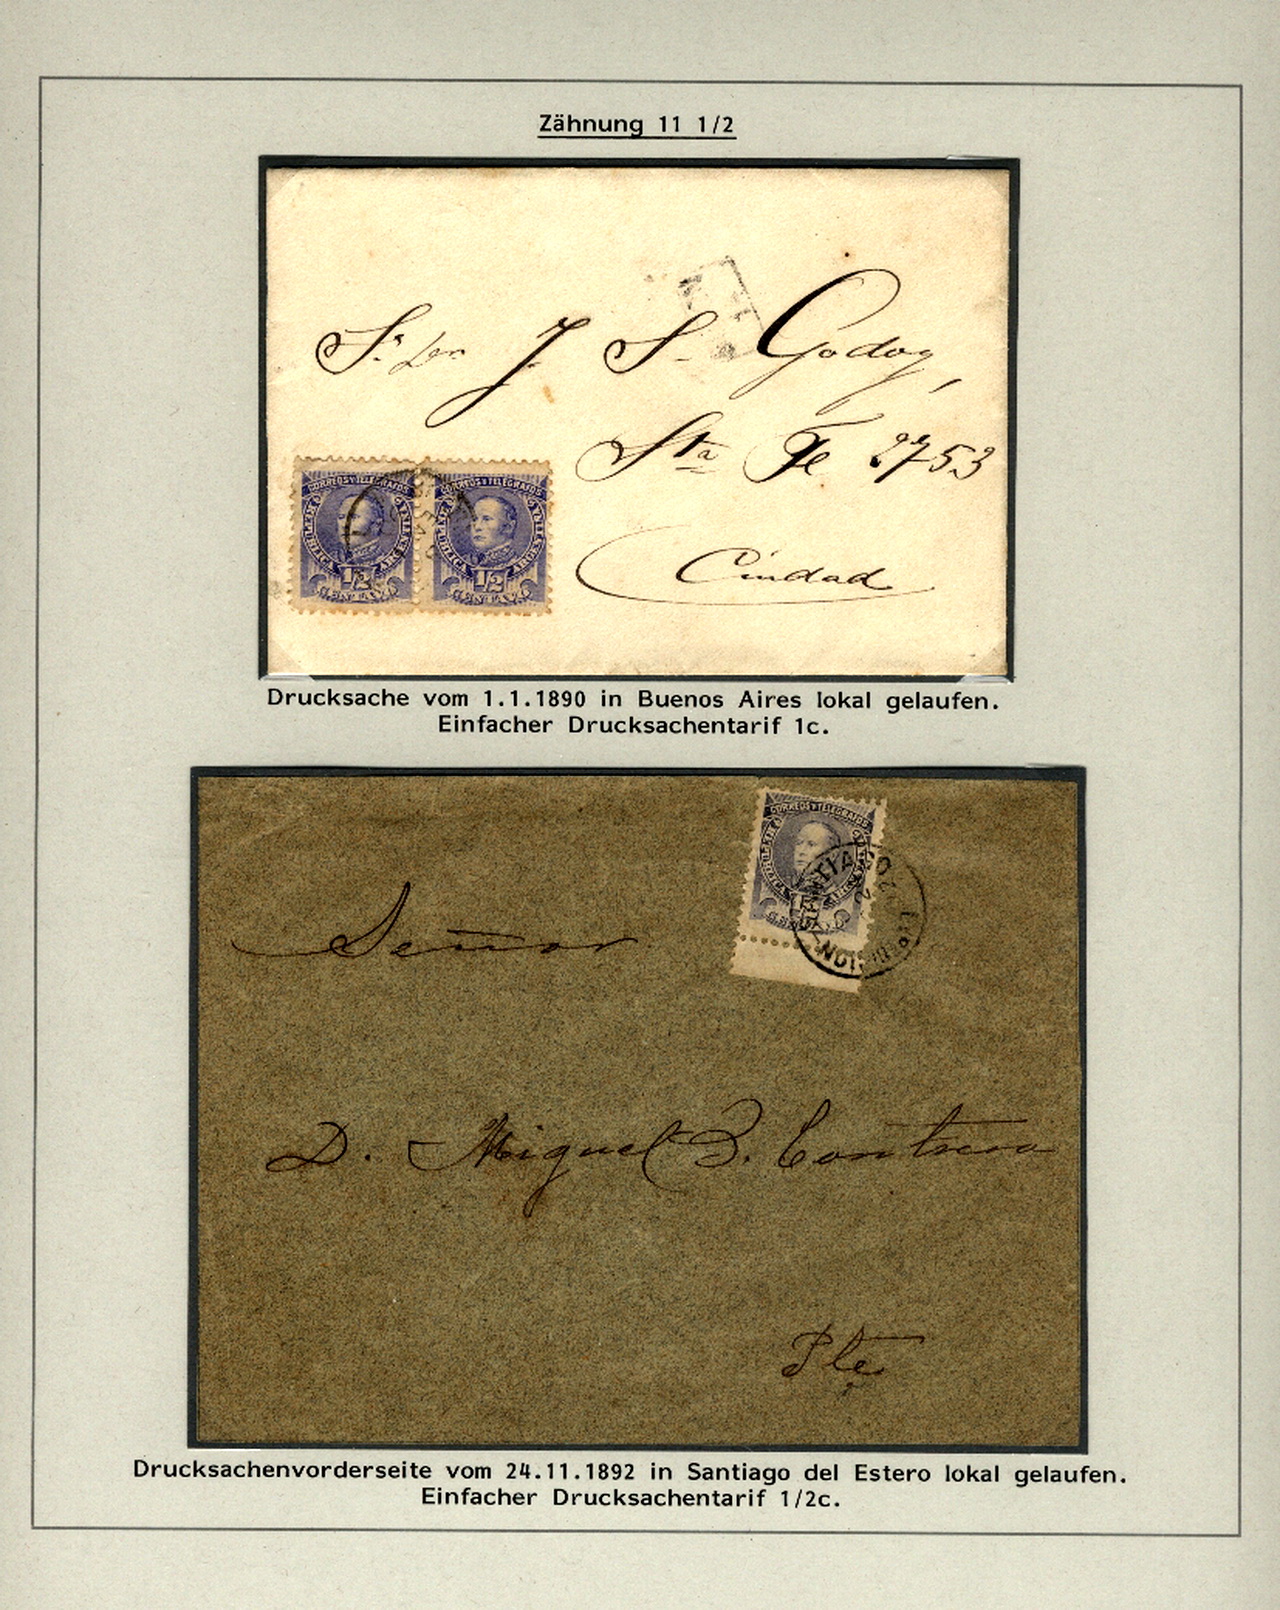 Zähnung 11 1/2
Sr. J. S. Godoy,
Sta Fe 2753
Ciudad
CORREOS Y TELEGRAFOS CORREOS Y TELEGRAFOS
REPUBLICA ARGENTINA REPUBLICA ARGENTINA
1/2 1/2
CENTAVO CENTAVO
Drucksache vom 1.1.1890 in Buenos Aires lokal gelaufen.
Einfacher Drucksachentarif 1c.
CORREOS Y TELEGRAFOS
REPUBLICA ARGENTINA
Señor
D. Miguel
Pte
Drucksachenvorderseite vom 24.11.1892 in Santiago del Estero lokal gelaufen.
Einfacher Drucksachentarif 1/2c.